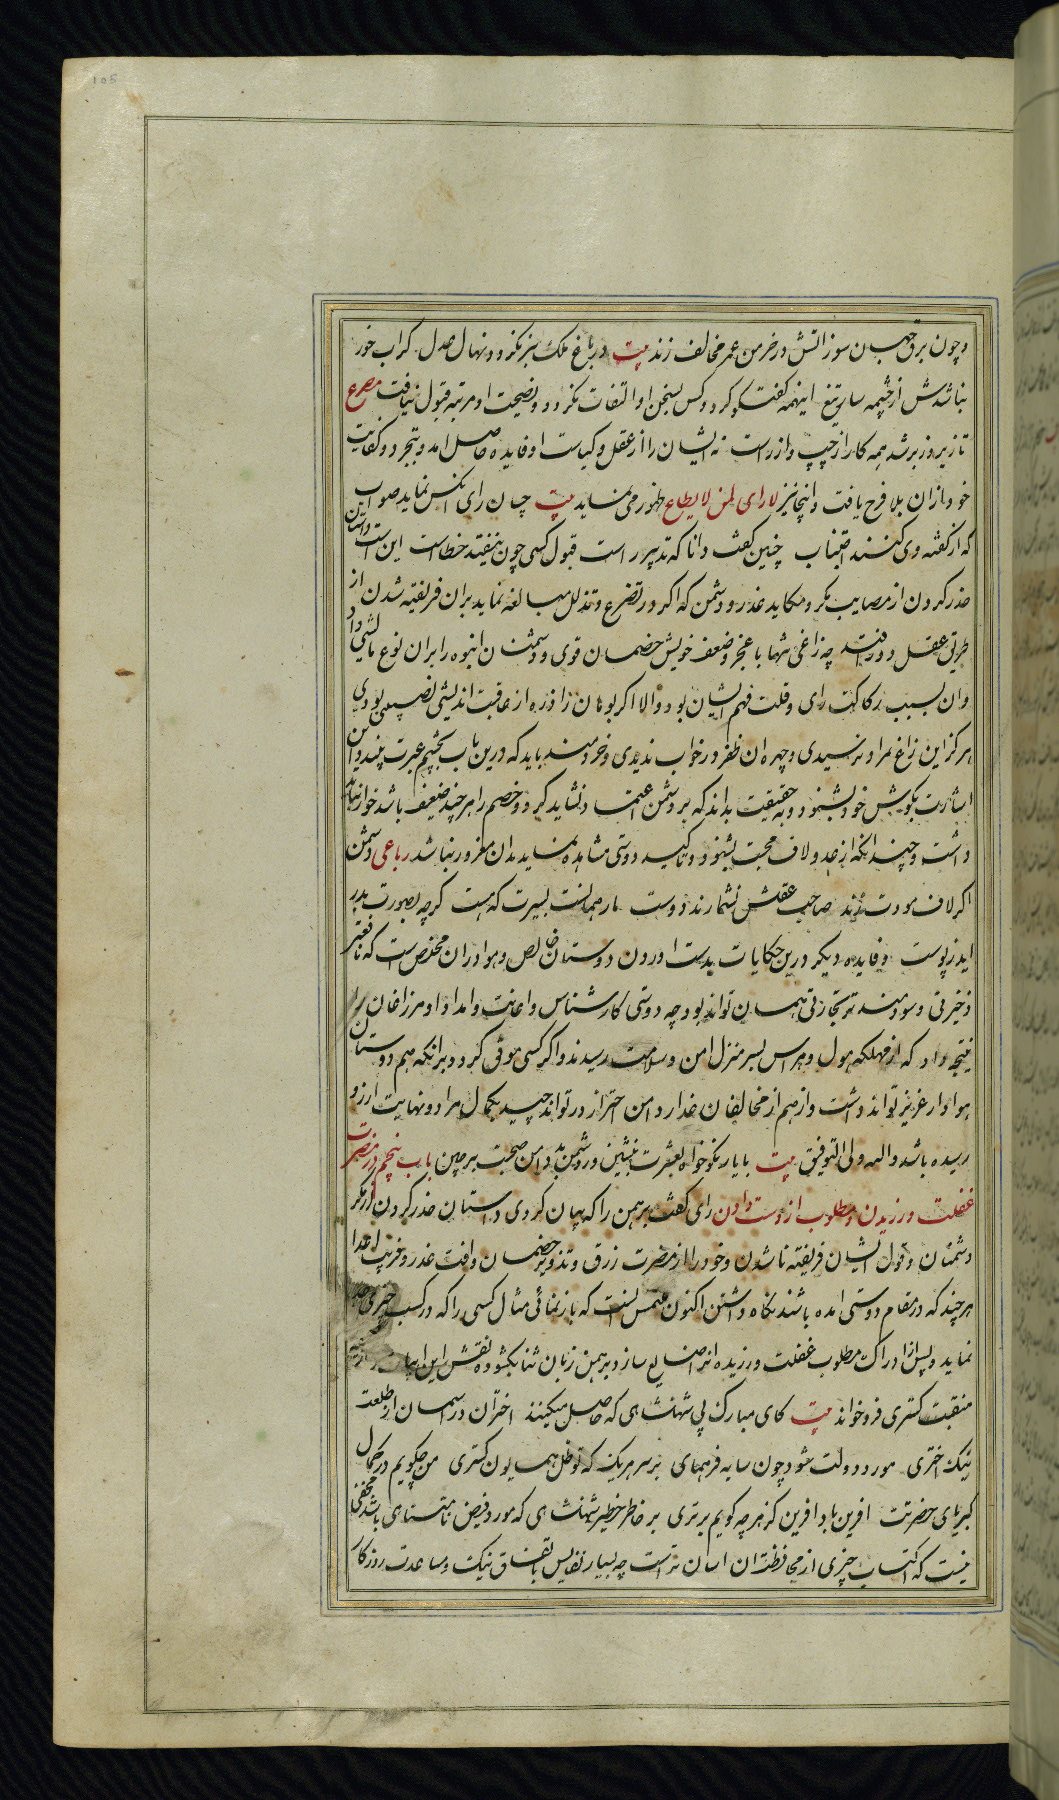 105
و چون برق جهان سوز آتش در خرمن عمر مخالف زند بیت در باغ ملک سبز نگردد نهال عدل گر آب خور
نباشدش از چشمه سار تیغ اینهمه گفتگو کرد و کس بسخن او التفات نکرد و نصیحت او مرتبه قبول نیافت مصرع
تا زیر و زبر شد همه کار از چپ و از راست نه ایشان را از عقل و کیاست او فایده حاصل آمد و نه بخرد و کفایت
خود ازان بلا فرج یافت و اینجا نیز لا رای لمن لا یطاع ظهور می نماید بیت چسان رای آنکس نماید صواب
که از گفته وی کنند اجتناب چنین گفت دانا که تدبیر راست قبول کسی چون نیفتد خطاست این است داستان
حذر کردن از مصایب مکر و مکاید غدر و دشمن که اگر در تضرع و تذلل مبالغه نماید بران فریفته شدن از
طریق عقل دور افتد چه زاغی تنها با عجز و ضعف خویش خصمان قوی و دشمنان انبوه را بران نوع مالشی داد
و آن بسبب رکاکت رای و قلت فهم ایشان بود و الا اگر بومان را ذره از عاقبت اندیشی نصیبی بودی
هرگز این زاغ بمراد نرسیدی و چهره آن ظفر در خواب ندیدی و خردمند باید که درین باب بچشم عبرت بیند و این
اشارت بگوش خرد بشنود و بحقیقت بداند که بر دشمن اعتماد نشاید کرد و خصم را هر چند ضعیف باشد خوار نباید
داشت و چندانکه از عدو لاف محبت بشنود و تاکید دوستی مشاهده نماید بدان مغرور نباشد رباعی دشمن
اگر لاف مودت زند صاحب عقلش نشمارند دوست مار همانست بسیرت که هست گرچه بصورت بدر
آید ز پوست و فایده دیگر درین حکایات بدست آوردن دوستان خالص و هواداران مخلص است که نافعتر
ذخیرتی و سودمندتر تجارتی همان تواند بود چه دوستی کارشناس و اعانت و امداد او مر زاغان را
نتیجه داد که از مهلکه هول و هراس بسر منزل امن و سلامت رسیدند و اگر کسی موفق گردد برانکه هم دوستان
هوادار عزیز تواند داشت و از هم از مخالفان غدار دامن احتراز در تواند چید بکمال مراد و نهایت آرزو
رسیده باشد والله ولی التوفیق بیت با یار نکوخواه بعشرت بنشین وز دشمن بد دامن صحبت برچین باب پنجم در مضرت
غفلت ورزیدن و مطلوب از دست دادن رای گفت برهمن را که بیان کردی داستان حذر کردن از مکر
دشمنان و بقول ایشان فریفته ناشدن و خود را از مضرت زرق و تزویر خصمان و آفت غدر و فریب اعدا
هر چند که در مقام دوستی آمده باشند نگاه داشتن اکنون ملتمس آنست که باز نمائی مثال کسی را که در کسب چیزی جد
نماید و پس از ادراک مطلوب غفلت ورزیده آنرا ضایع سازد برهمن زبان ثنا بگشوده نقش این ابیات
منقبت گستری فرو خواند بیت کای مبارک پی شهنشاهی که حاصل میکنند اختران در آسمان از طلعتت
نیک اختری مورد دولت شود چون سایه فر همای بر سر هر یک که تو ظل همایون گستری من چگویم در کمال
کبریای حضرتت آفرین باد آفرین کز هر چه گویم برتری بر خاطر خطیر شهنشاهی که مورد فیض نامتناهی باشد مخفی
نیست که اکتساب چیزی از محافظت آن آسان تر است چه بسیار نفایس باتفاق نیک و مساعدت روزگار